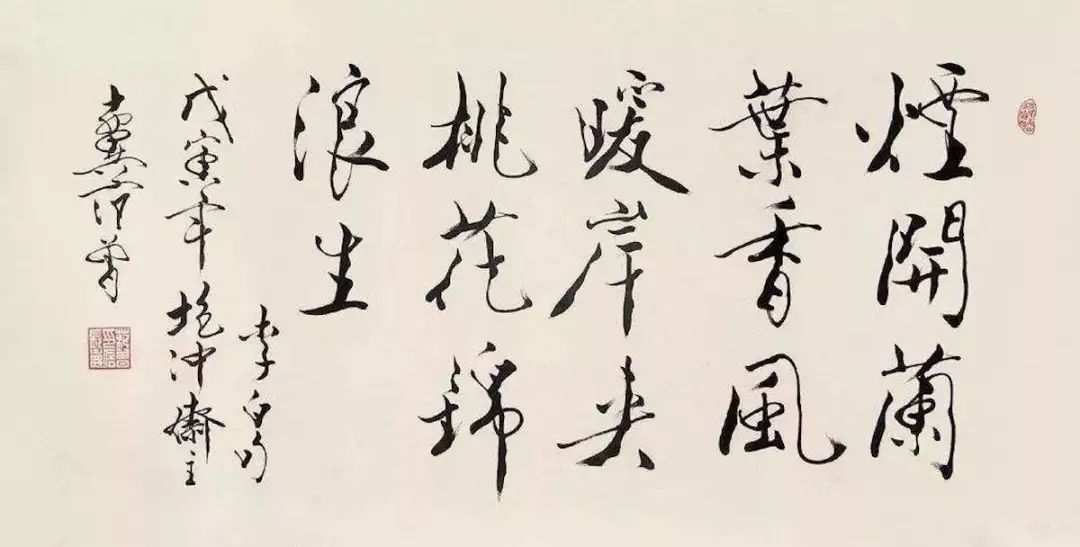 煙開蘭
葉香風
暖岸夹
桃花錦
浪生
李白句
戊寅年抱冲齋主
十翼范曾